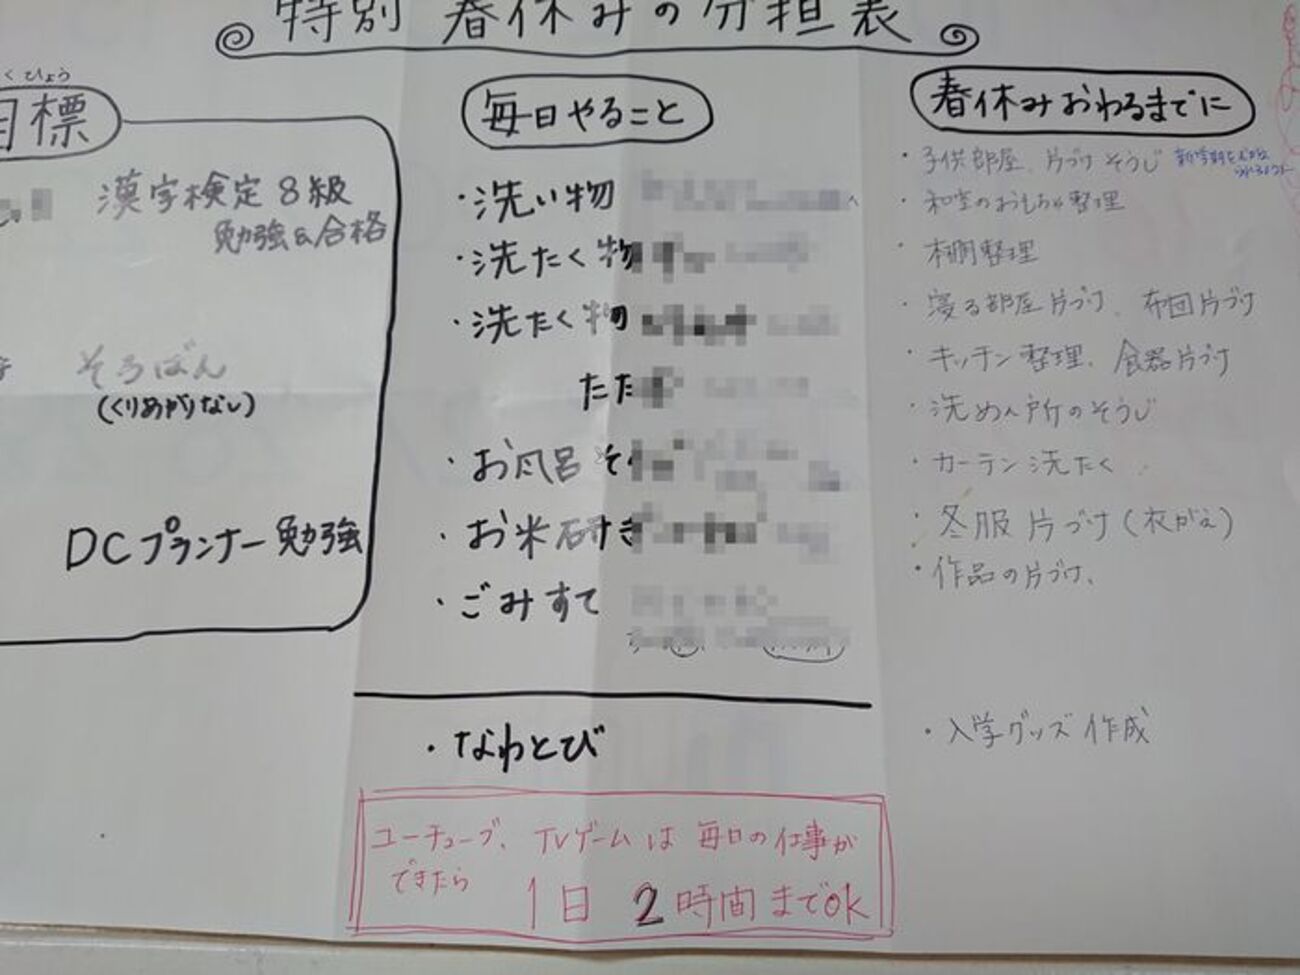 特別 春休みの分担表
くひょう
目標
漢字検定8級
勉強&合格
そろばん
(くりあがりなし)
DCプランナー勉強
毎日やること
・洗い物
・洗たく物
・洗たく物
たた
・お風呂そ
・お米研ぎ
・ごみすて
・なわとび
ユーチューブ、TVゲームは毎日の仕事が
できたら
1日 2時間までOK
春休みおわるまでに
・子供部屋、片づけそうじ
・和室のおもちゃ整理
・本棚整理
・寝る部屋片づけ、布団片づけ
・キッチン整理、食器片づけ
・洗めん所のそうじ
・カーテン洗たく
・冬服片づけ(衣がえ)
・作品の片づけ、
・入学グッズ作成